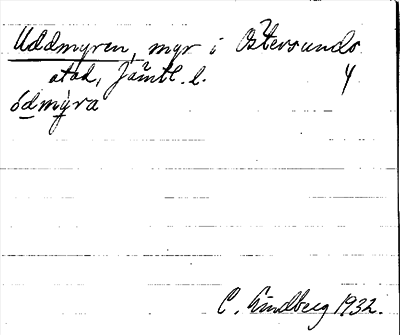 Uddmyren, myr i Östersunds
stad, Jämtl. l. 4
ódmýra
C. Lindberg 1932.